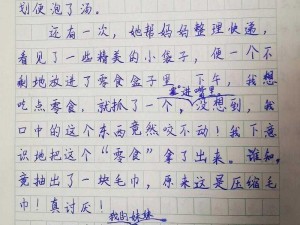 划便泡了汤。
还有一次，她帮妈妈整理快递，
看见了一些精美的小袋子，便一个不
剩地放进了零食盒子里。下午，我想
吃点零食，就抓了一个塞进嘴里，没想到，我
口中的这个东西竟然咬不动！我下意
识地把这个“零食”拿了出来。谁知，
竟抽出了一块毛巾，原来这是压缩毛
巾！真讨厌！
我的妹妹